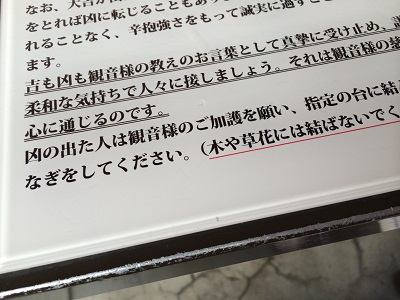 なお、大吉が
をとれば凶に転じることもあ
れることなく、辛抱強さをもって誠実に過すこと
ます。
吉も凶も観音様の教えのお言葉として真摯に受け止め、
柔和な気持ちで人々に接しましょう。それは観音様の
心に通じるのです。
凶の出た人は観音様のご加護を願い、指定の台に結
なぎをしてください。（木や草花には結ばないでく